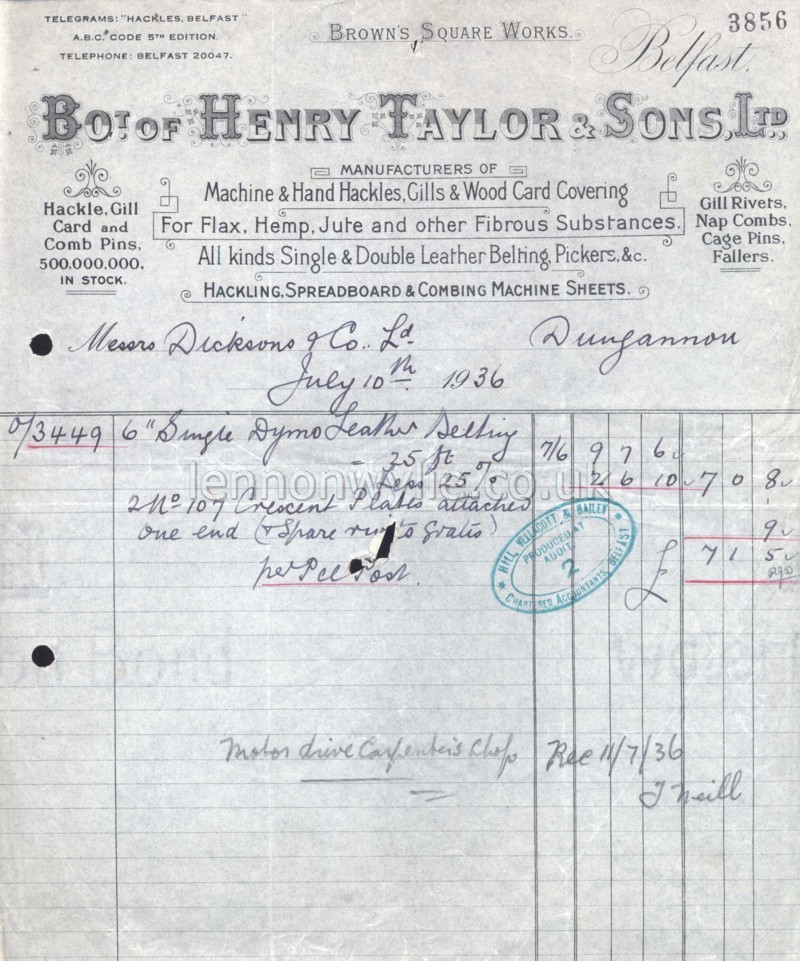 TELEGRAMS: "HACKLES, BELFAST"
A.B.C. CODE 5TH EDITION.
TELEPHONE: BELFAST 20047.
BROWN'S SQUARE WORKS.
3856
Belfast.
BOT. OF HENRY TAYLOR & SONS, LTD.
MANUFACTURERS OF
Machine & Hand Hackles, Gills & Wood Card Covering
For Flax, Hemp, Jute and other Fibrous Substances.
All kinds Single & Double Leather Belting, Pickers, &c.
HACKLING, SPREADBOARD & COMBING MACHINE SHEETS.
Hackle, Gill
Card and
Comb Pins,
500.000,000.
IN STOCK.
Gill Rivets,
Nap Combs,
Cage Pins,
Fallers.
Messrs Dicksons & Co. Ld. Dungannon
July 10th 1936
O/3449 6" Single Dymo Leather Belting
- 25 ft 7/6 9 7 6
Less 25% 2 6 10 7 0 8
lennonwylie.co.uk
2 No 107 Crescent Plates attached
one end (& Spare to gratis) 9
£ 7 1 5
per Pcl Post.
HILL, VELLACOTT & BAILEY
PRODUCED AT
AUDIT
2
CHARTERED ACCOUNTANTS, BELFAST
Motor drive Carpenters Shop Rec 11/7/36
J Neill